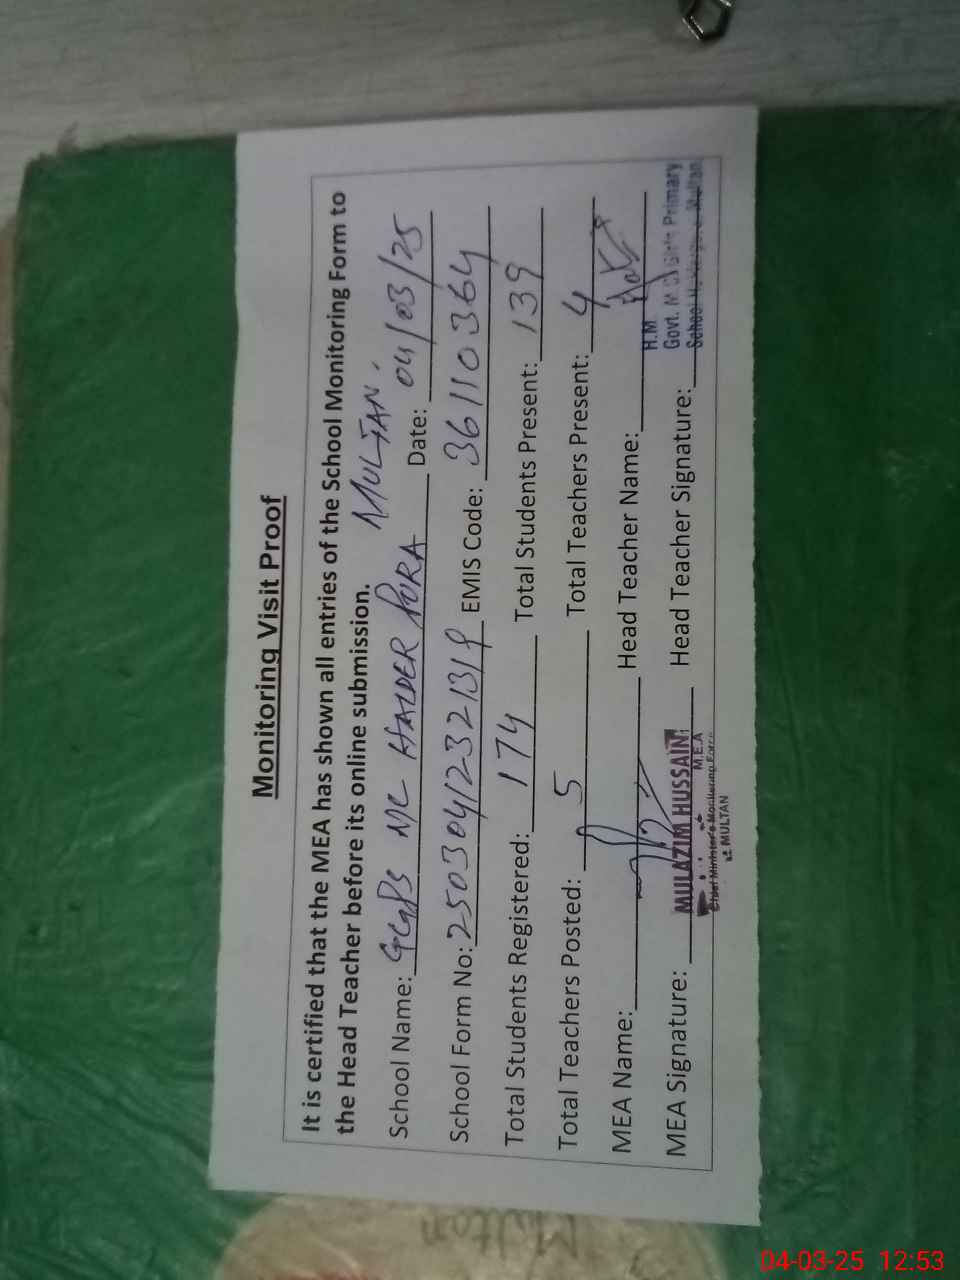 Monitoring Visit Proof
It is certified that the MEA has shown all entries of the School Monitoring Form to
the Head Teacher before its online submission.
School Name: GGPS MC HAIDER PURA MULTAN. Date: 04/03/25
School Form No: 25030412321319 EMIS Code: 36110364
Total Students Registered: 174 Total Students Present: 139
Total Teachers Posted: 5 Total Teachers Present: 4
MEA Name: Head Teacher Name:
MEA Signature: Head Teacher Signature:
MULAZIM HUSSAIN
M.E.A
Chief Minister's Monitoring Force
MULTAN
H.M
Govt. M.C Girls Primary
School Multan
Multan
04-03-25 12:53